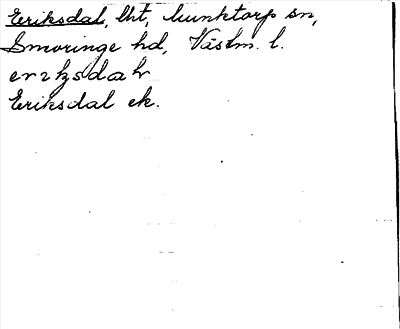 Eriksdal, lht, Munktorp sn,
Snevringe hd, Västm. l.
Eriksdal ek.